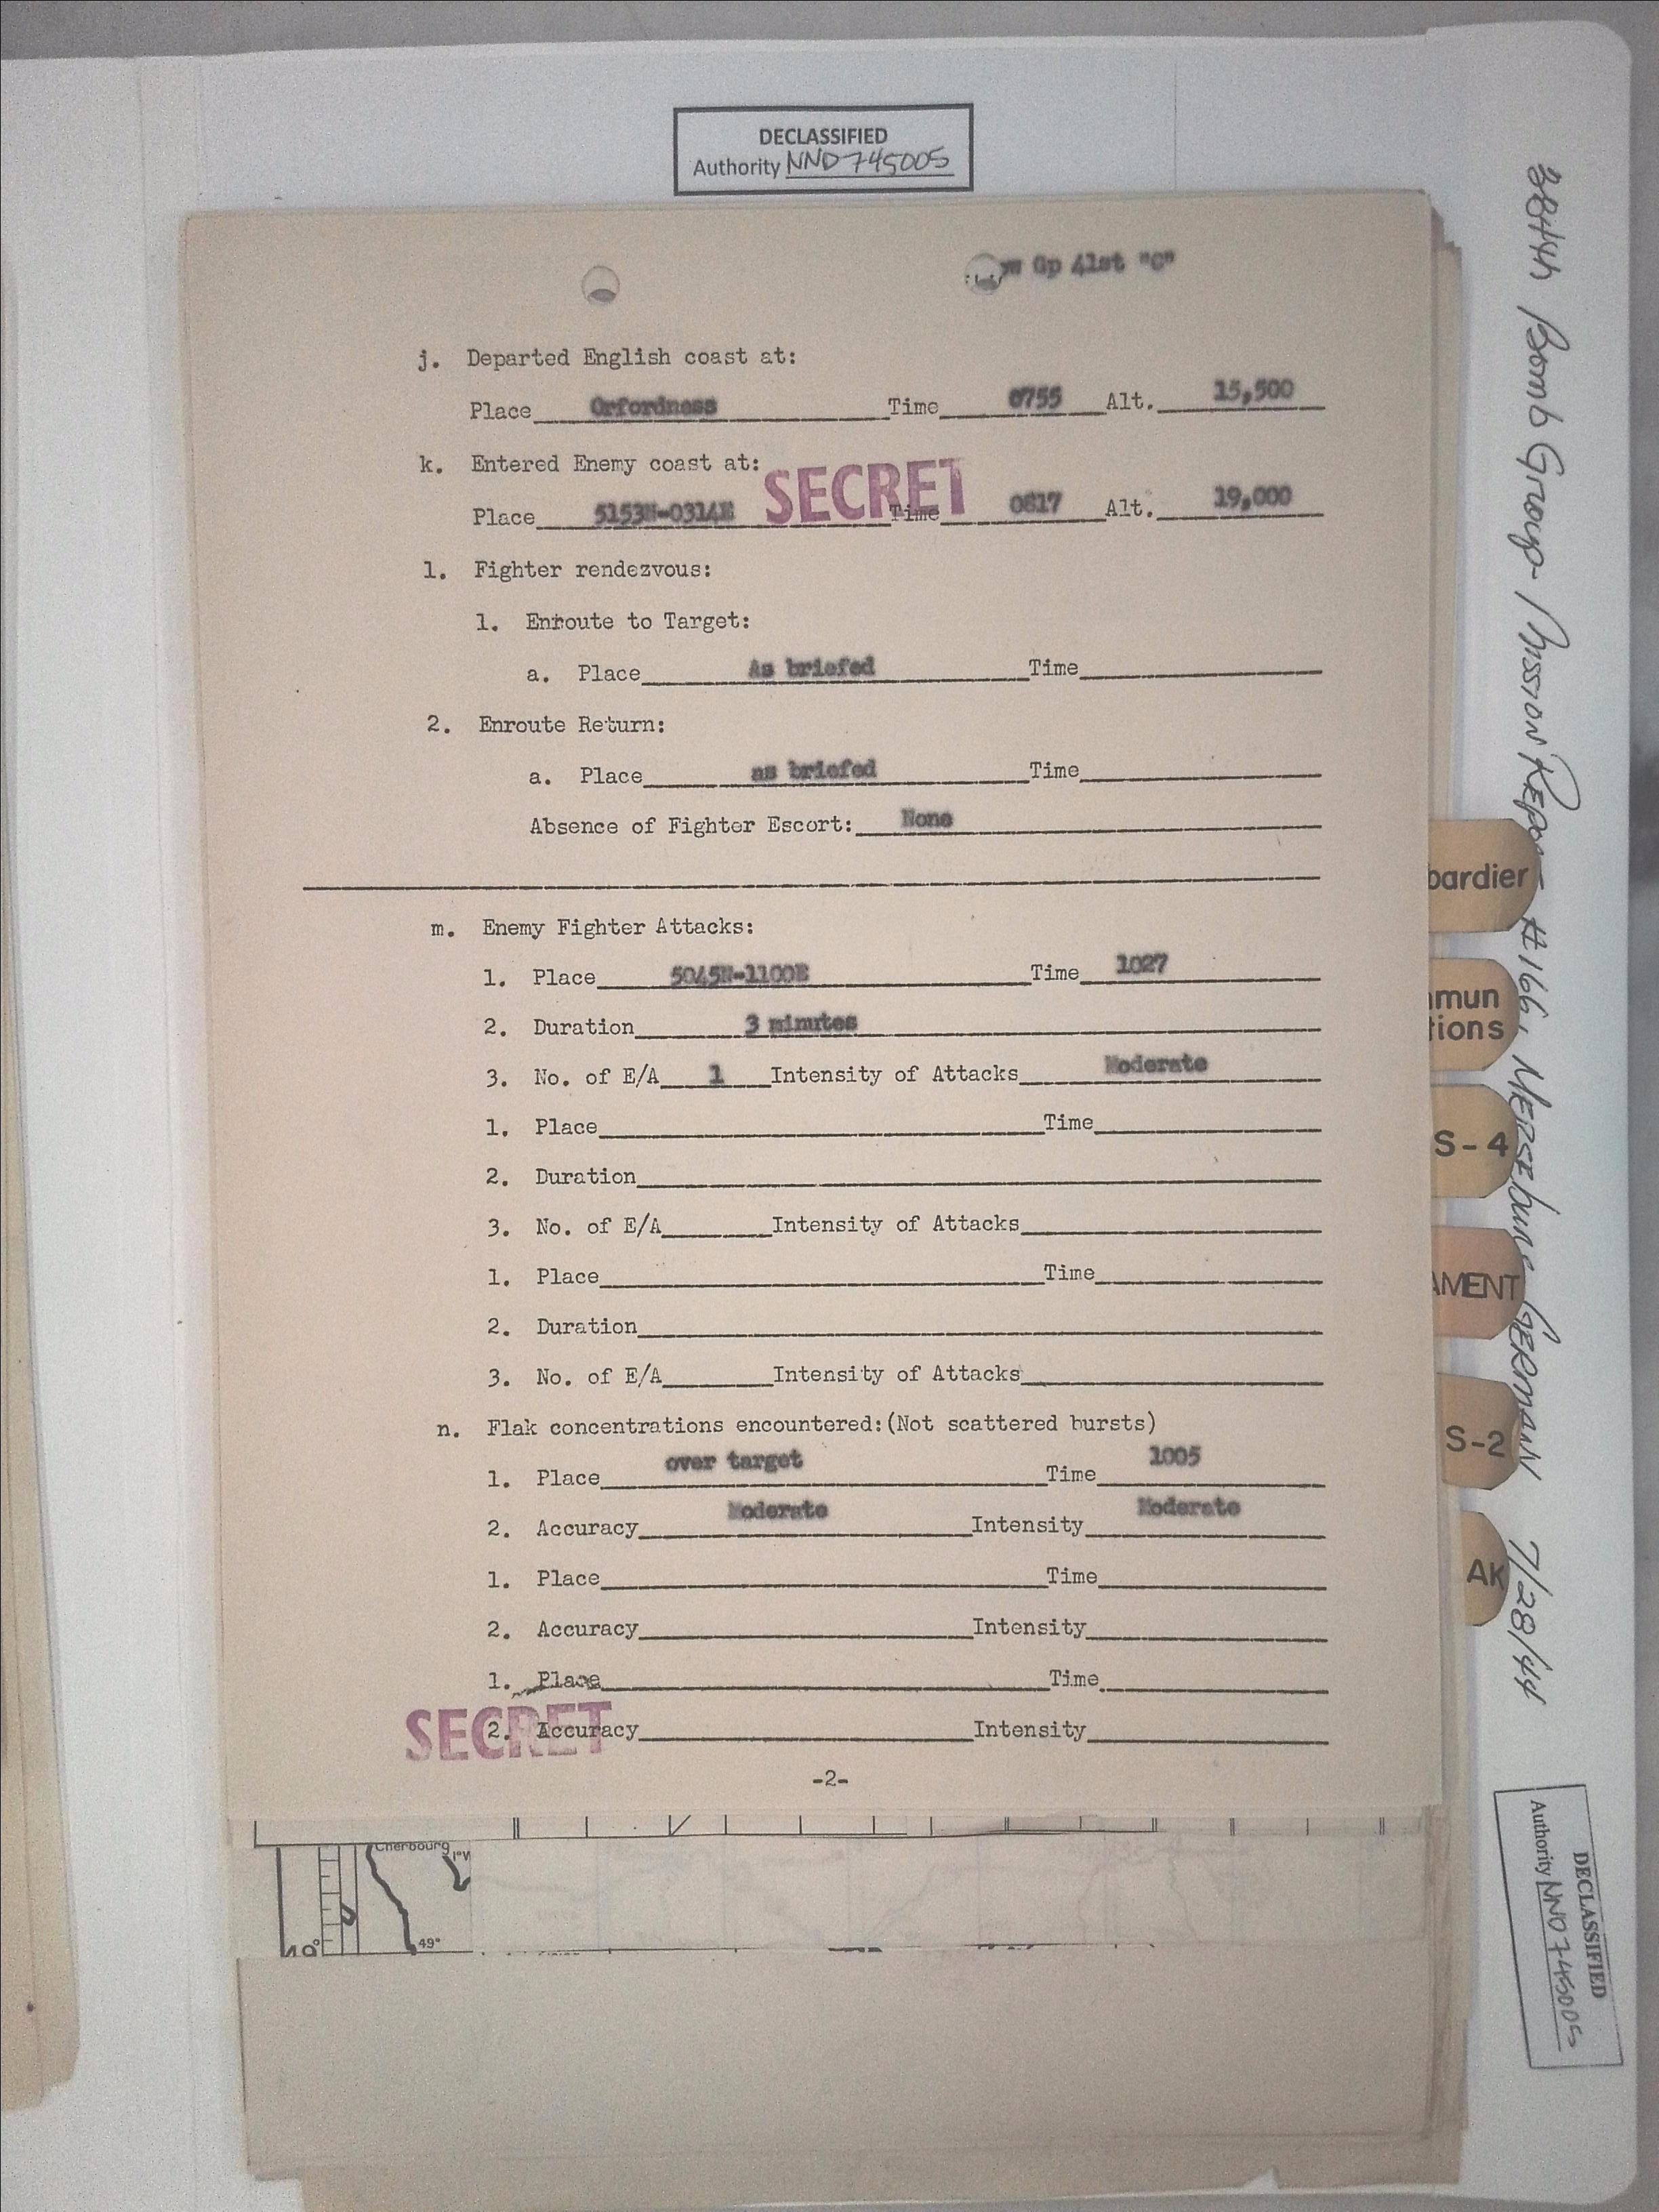 DECLASSIFIED
Authority NND 745005
w Gp 41st "C"
j. Departed English coast at:
Place Orfordness Time 0755 Alt. 15,500
k. Entered Enemy coast at:
SECRET
Place 5153N-0314E Time 0817 Alt. 19,000
l. Fighter rendezvous:
1. Enroute to Target:
a. Place As briefed Time
2. Enroute Return:
a. Place as briefed Time
Absence of Fighter Escort: None
m. Enemy Fighter Attacks:
1. Place 5045N-1100E Time 1027
2. Duration 3 minutes
3. No. of E/A 1 Intensity of Attacks Moderate
1. Place Time
2. Duration
3. No. of E/A Intensity of Attacks
1. Place Time
2. Duration
3. No. of E/A Intensity of Attacks
n. Flak concentrations encountered:(Not scattered bursts)
1. Place over target Time 1005
2. Accuracy Moderate Intensity Moderate
1. Place Time
2. Accuracy Intensity
1. Place Time
SECRET
2. Accuracy Intensity
-2-
Cherbourg
1°W
49°
49°
bardier
mun
tions
S-4
AMENT
S-2
AK
384th Bomb Group- Mission Report #166, Merseburg German 7/28/44
DECLASSIFIED
Authority NND 745005